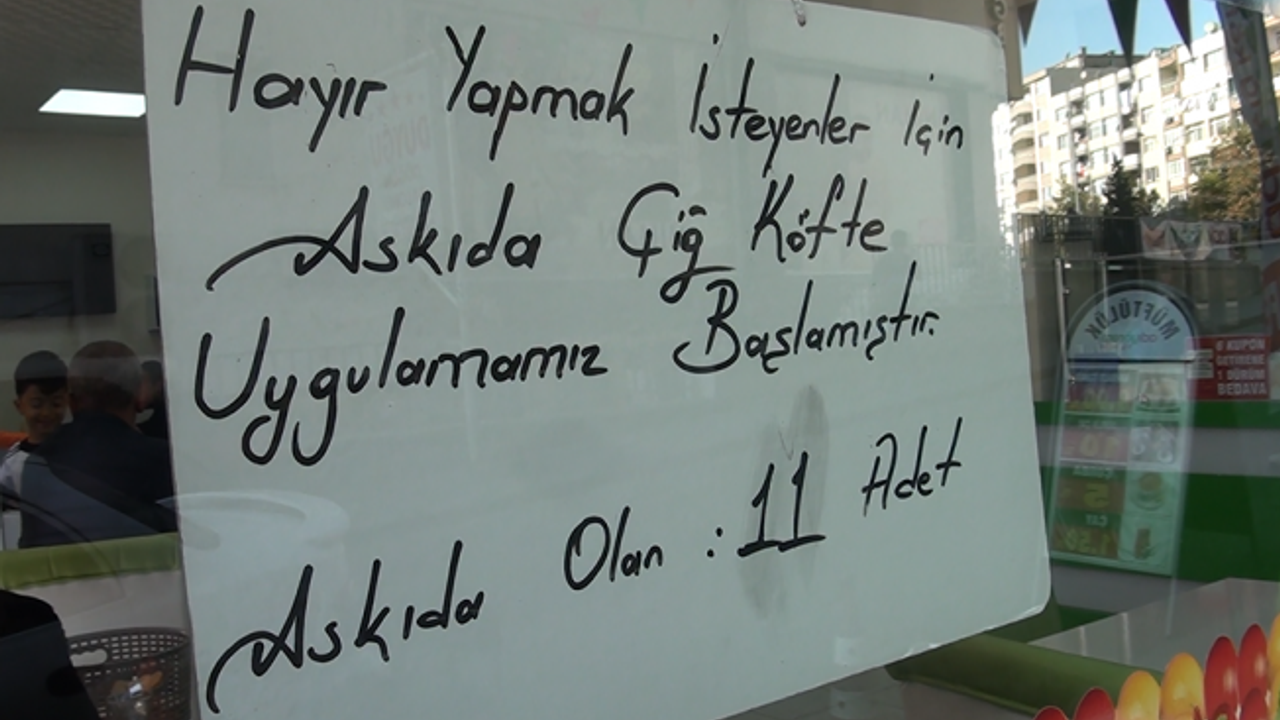 Hayır Yapmak İsteyenler İçin
Askıda Çiğ Köfte
Uygulamamız Başlamıştır.
Askıda Olan : 11 Adet
MÜFTÜLÜK
6 KUPON
GETİRENE
1 DÜRÜM
BEDAVA